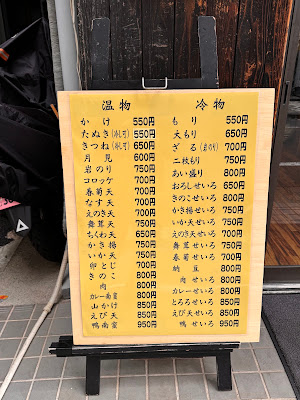 温物
かけ 550円
たぬき(冷し可) 550円
きつね(冷し可) 650円
月見 600円
岩のり 750円
コロッケ 700円
春菊天 700円
なす天 700円
えのき天 700円
舞茸天 750円
ちくわ天 650円
かき揚 750円
いか天 750円
卵とじ 700円
きのこ 800円
肉 800円
カレー南蛮 800円
山かけ 850円
えび天 850円
鴨南蛮 950円
冷物
もり 550円
大もり 650円
ざる(岩のり) 700円
二枚もり 750円
あい盛り 800円
おろしせいろ 650円
きのこせいろ 800円
かき揚せいろ 750円
いか天せいろ 750円
えのき天せいろ 700円
舞茸せいろ 750円
春菊せいろ 700円
納豆 800円
肉せいろ 800円
カレーせいろ 800円
とろろせいろ 850円
えび天せいろ 850円
鴨せいろ 950円